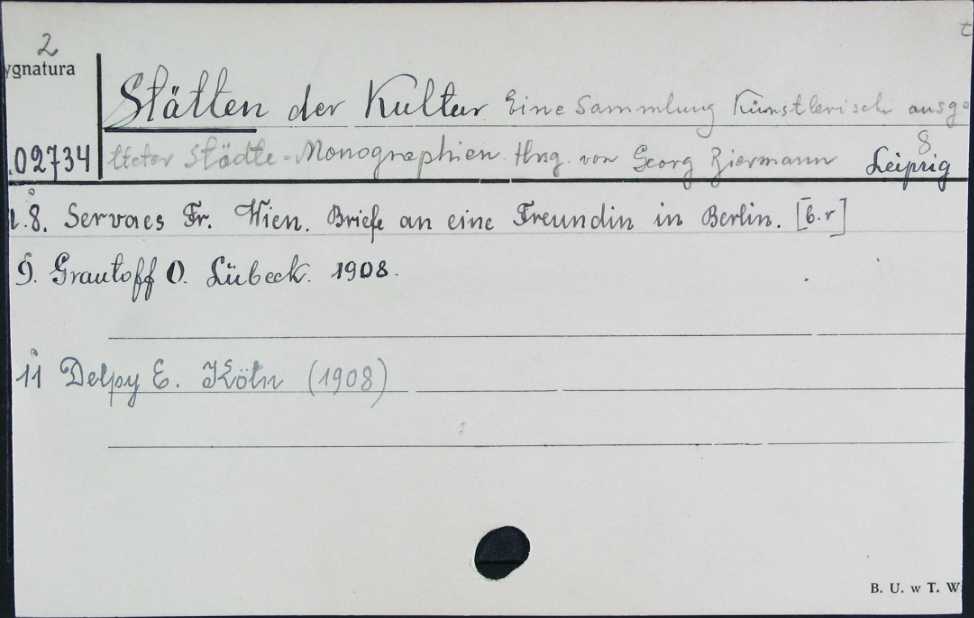 2
ygnatura
Stätten der Kultur Eine Sammlung Künstlerisch ausge
02734 tteter Städte-Monographien. Hrsg. von Georg Biermann 8. Leipzig
8. Servaes Fr. Wien. Briefe an eine Freundin in Berlin. [b.r]
9. Grautoff O. Lübeck. 1908.
11 Delpy E. Köln (1908)
B. U. w T. W